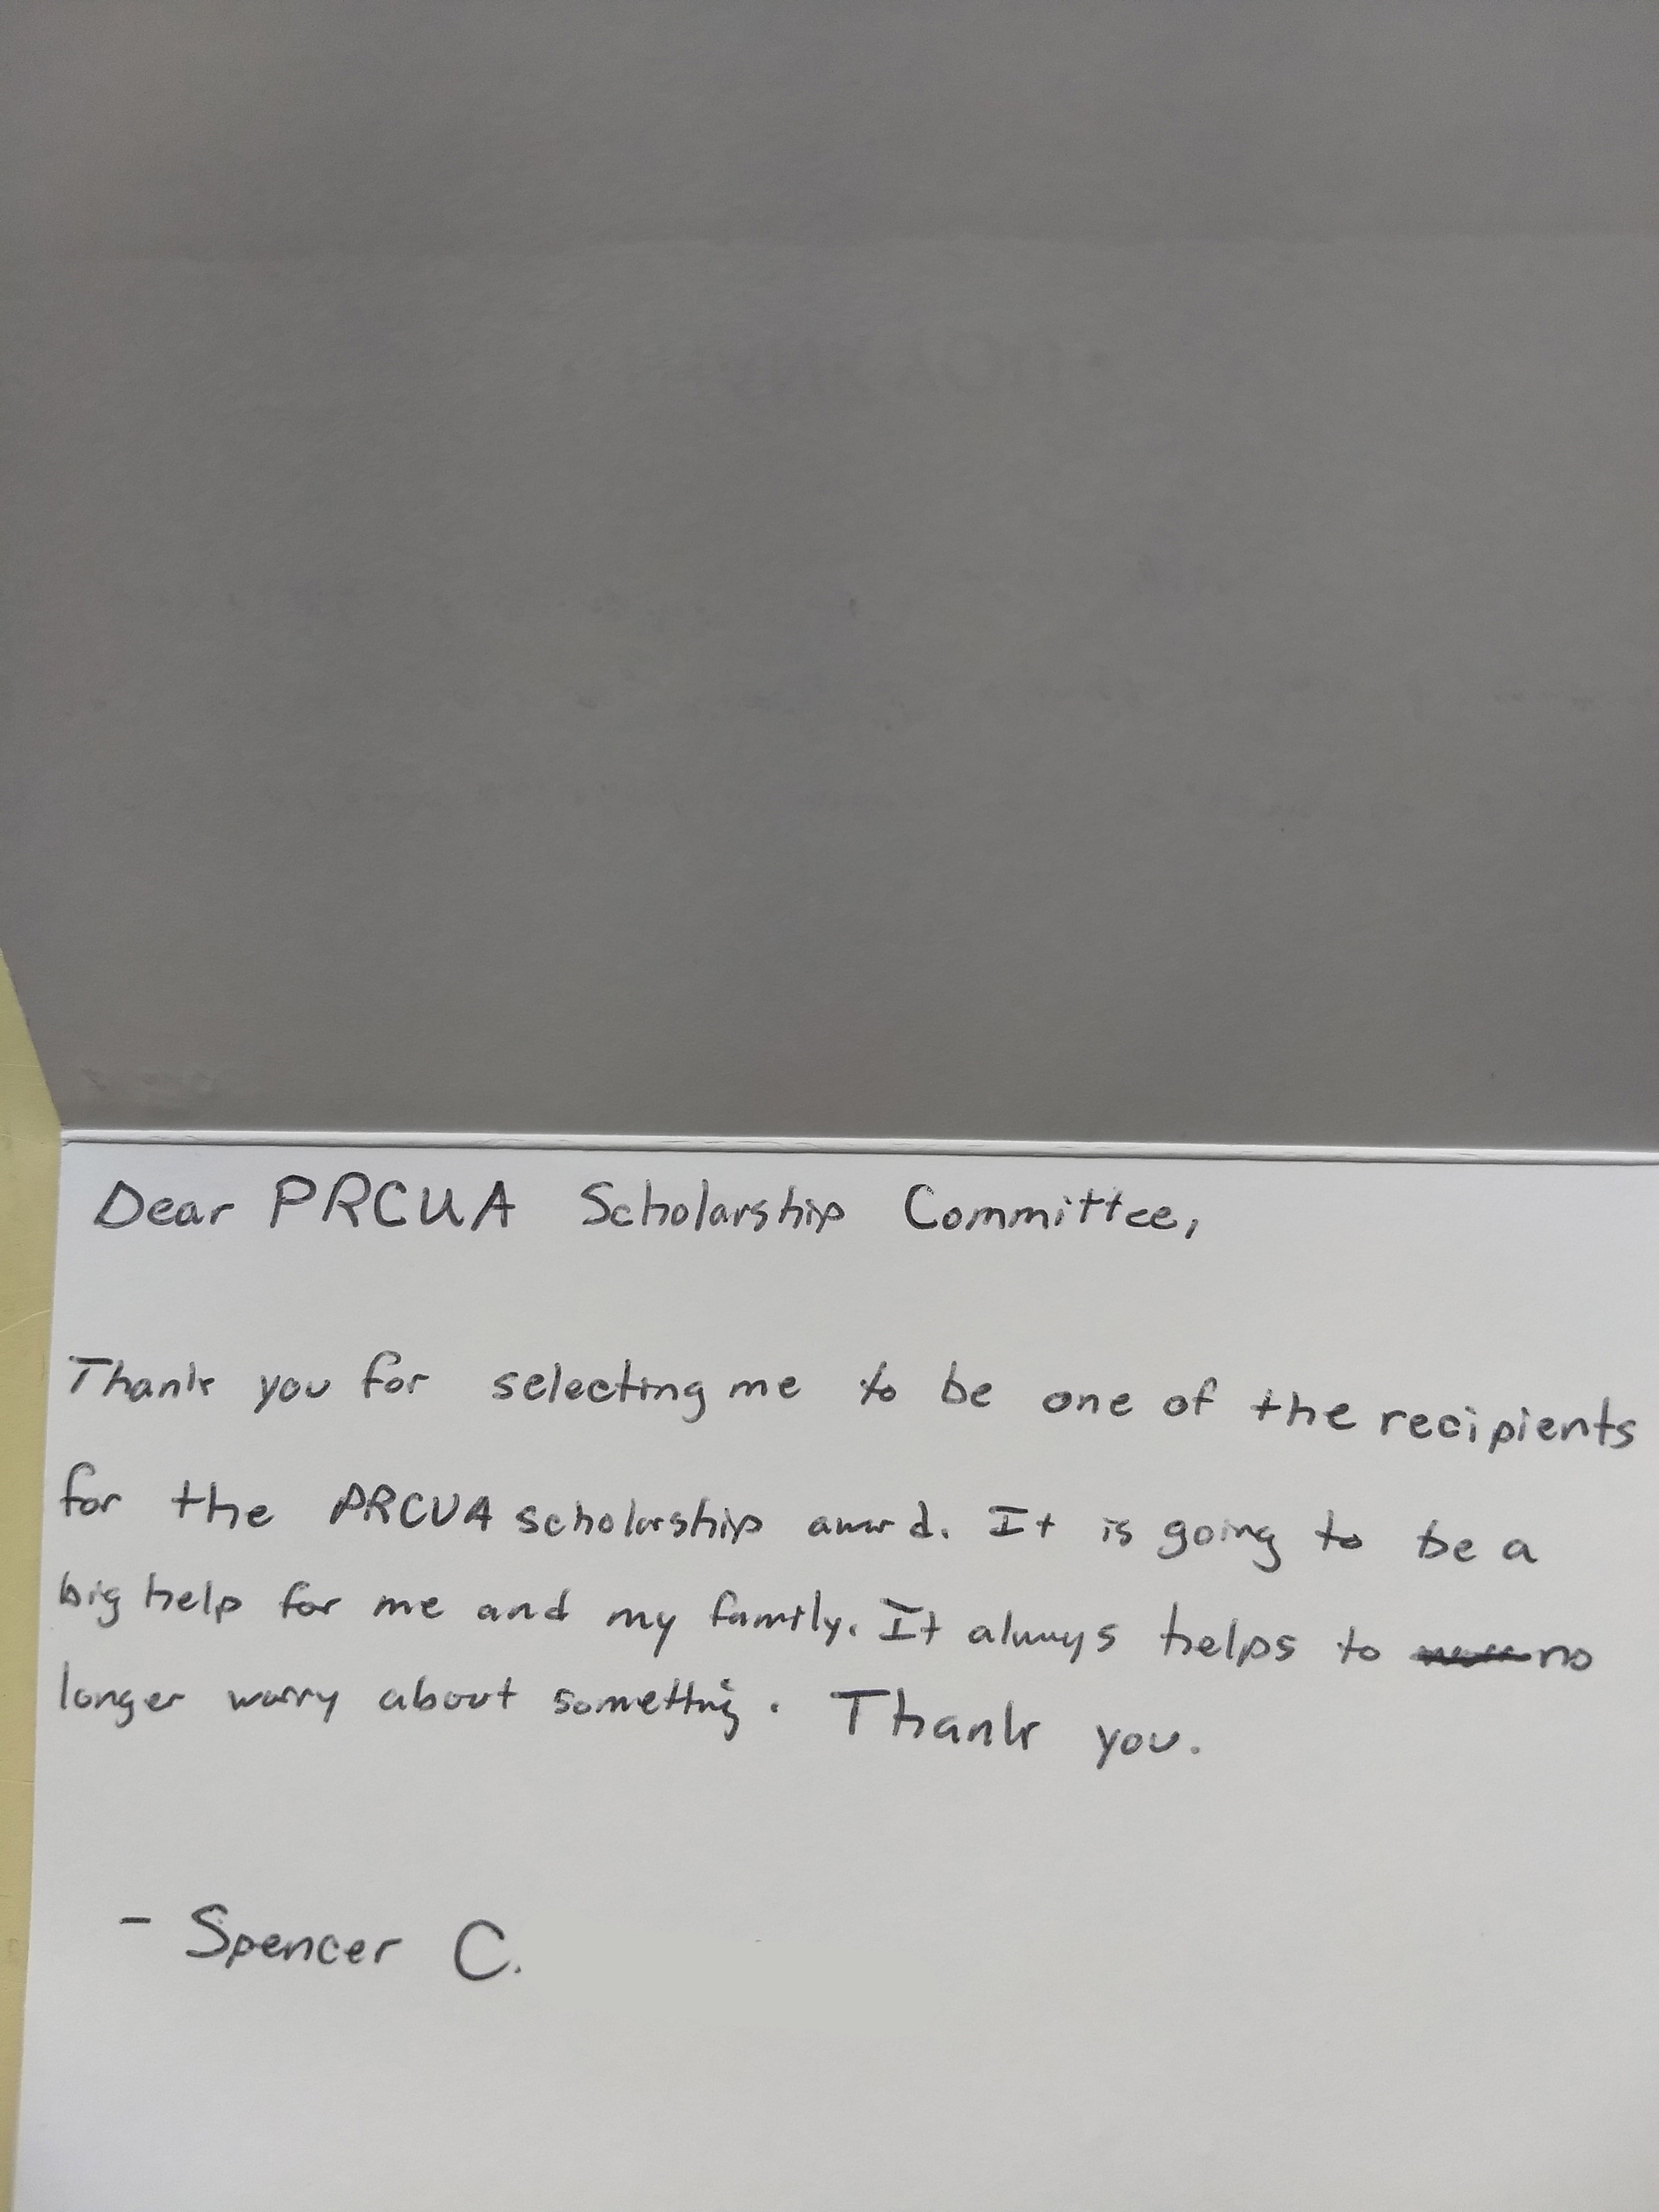 Dear PRCUA Scholarship Committee,
Thank you for selecting me to be one of the recipients
for the PRCUA scholarship award. It is going to be a
big help for me and my family. It always helps to no
longer worry about something. Thank you.
- Spencer C.